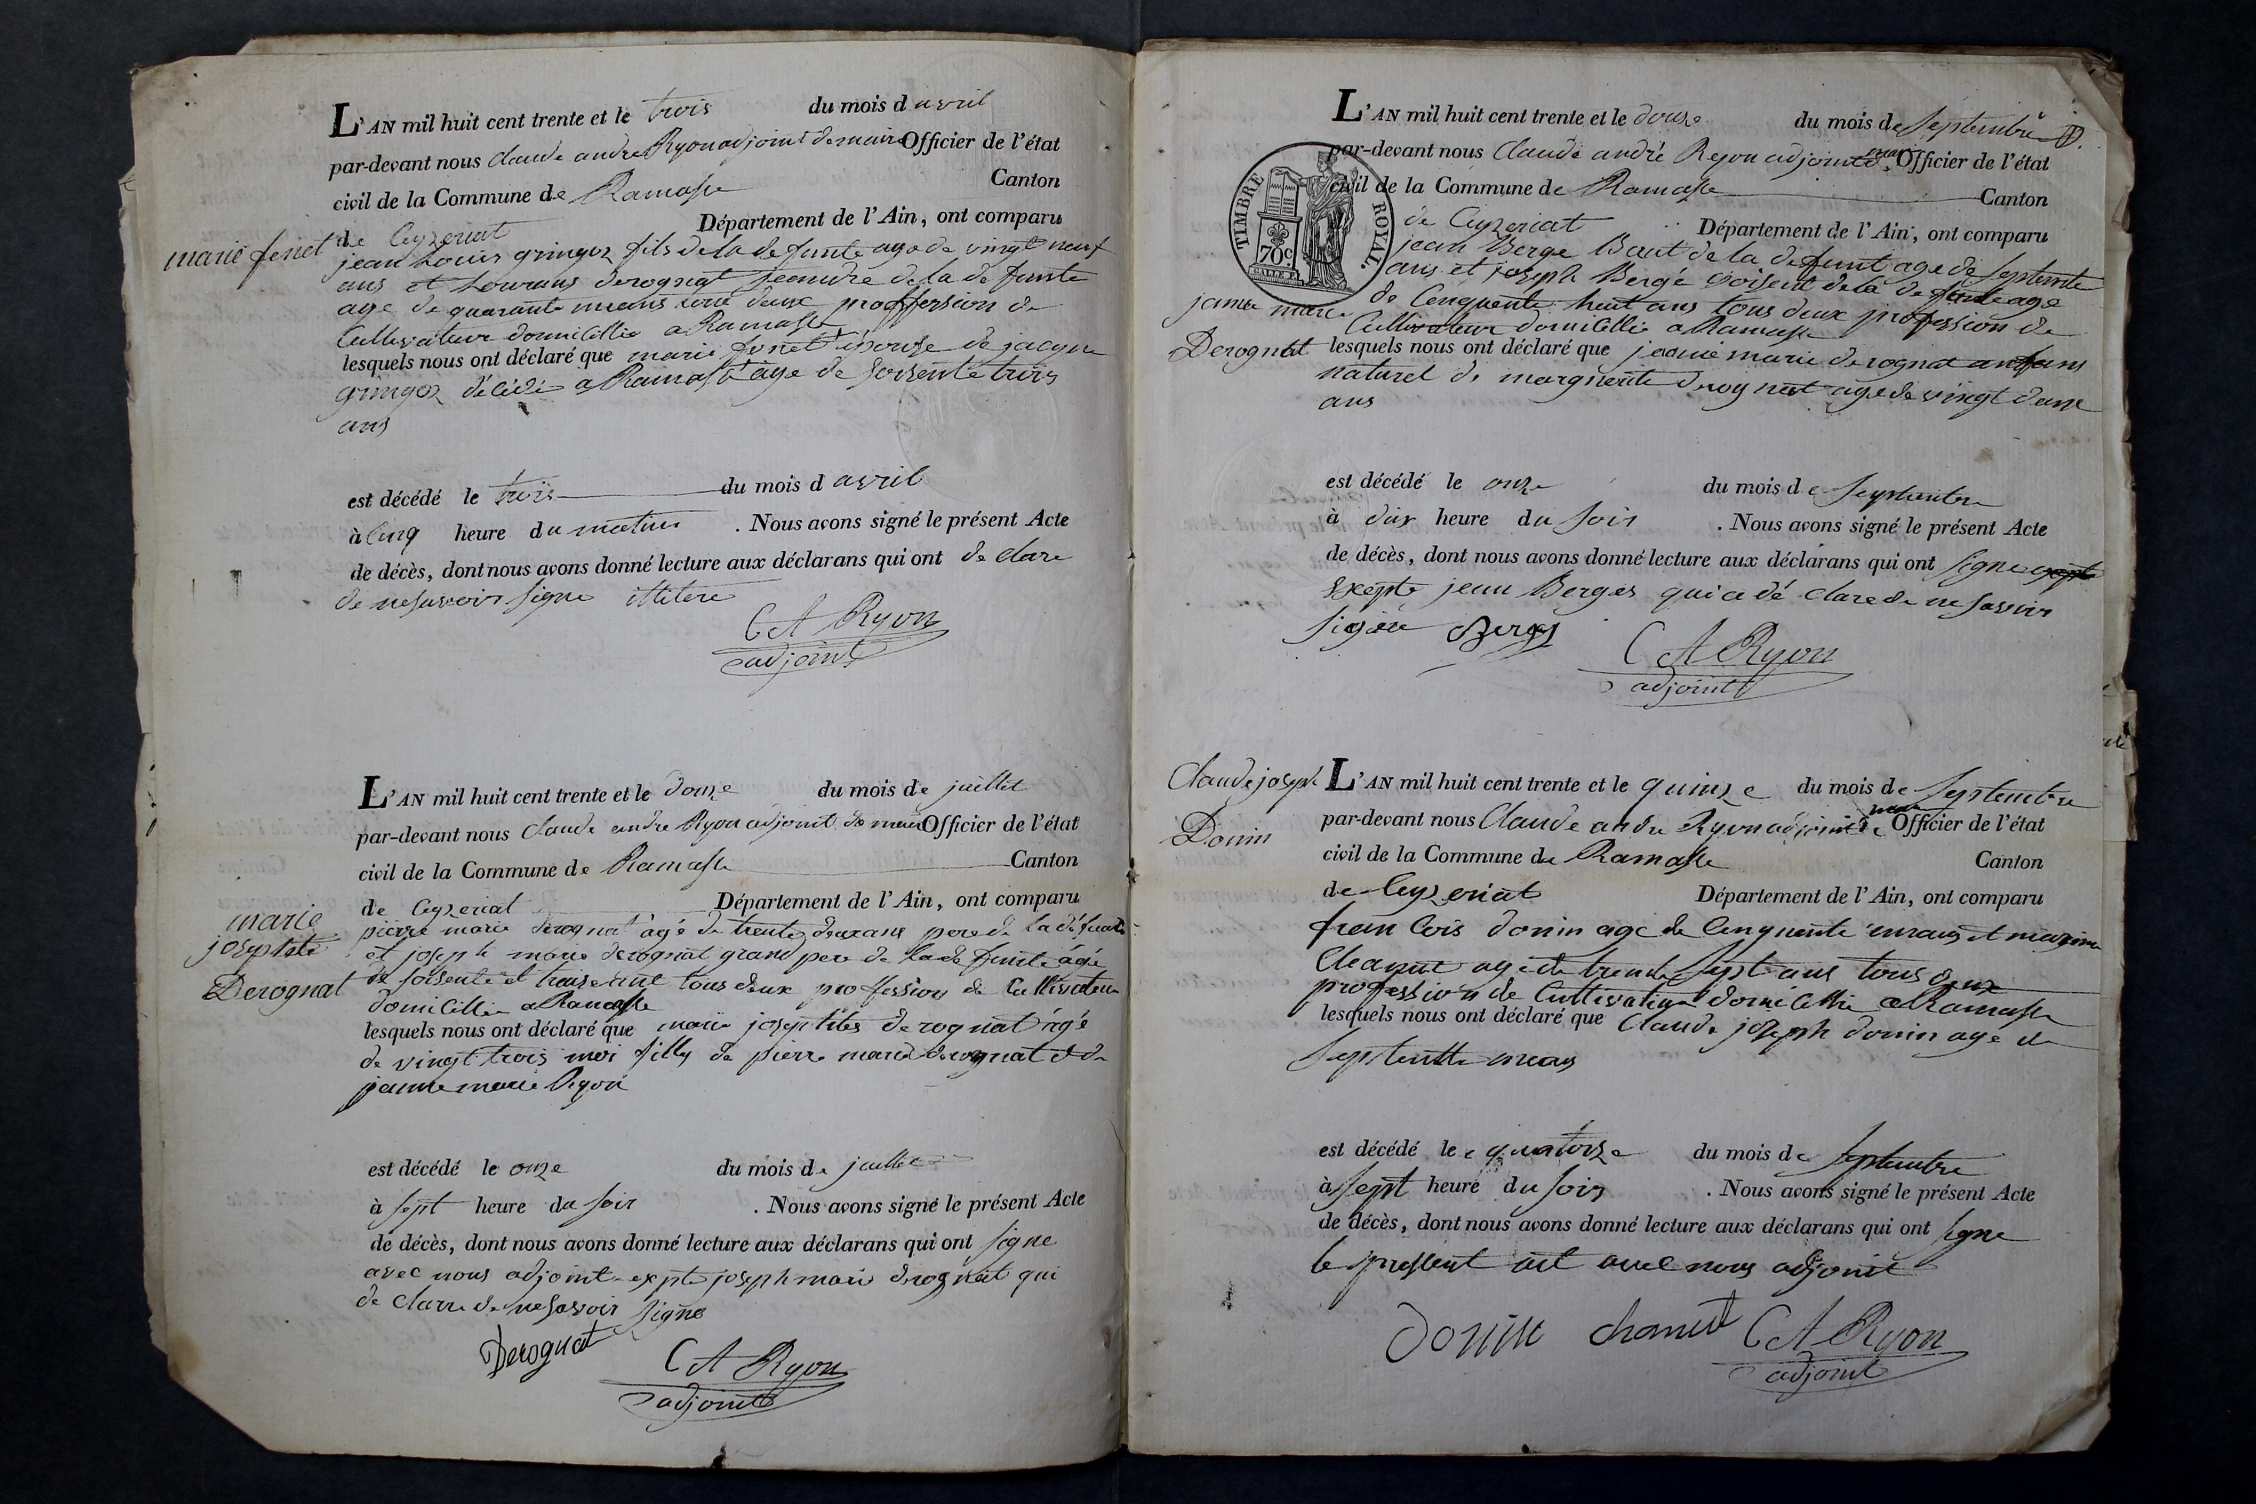 L'AN mil huit cent trente et le trois du mois d avril
par-devant nous Claude andre Ryon adjoint de maire Officier de l'état
civil de la Commune de Ramasse Canton
de Ceyzeriat Département de l'Ain, ont comparu
marie fenet
jean Louis gringoz fils de la defunte age de vingt neuf
ans et Lourans derognat jeandre de la de funte
age de quarante unans tous deux proffession de
Cultivateur domicillie a Ramasse
lesquels nous ont déclaré que marie fenet épouse de jacque
gringoz décédé a Ramasse age de soisente trois
ans
est décédé le trois du mois d avril
à Cinq heure du matin . Nous avons signé le présent Acte
de décès, dont nous avons donné lecture aux déclarans qui ont de clare
de ne savoir signe
C A Ryon
adjoint
L'AN mil huit cent trente et le douze du mois de juillet
par-devant nous Claude andre Ryon adjoint de maire Officier de l'état
civil de la Commune de Ramasse Canton
de Ceyzeriat Département de l'Ain, ont comparu
marie
josephte
Derognat
pierre marie derognat âgé de trente deux ans pere de la défunte
et joseph marie derognat grand pere de la de funte âgé
de soisente et tous deux proffession de Cultivateur
domicillie a Ramasse
lesquels nous ont déclaré que marie josephte derognat âgé
de vingt trois moi filly de pierre marie derognat et de
janne marie Ryon
est décédé le onze du mois de juillet
à sept heure du soir . Nous avons signé le présent Acte
de décès, dont nous avons donné lecture aux déclarans qui ont signe
avec nous adjoint expte joseph marie derognat qui
de clarre de ne savoir signe
Derognat
C A Ryon
adjoint
L'AN mil huit cent trente et le douze du mois de Septembre
par-devant nous Claude andré Ryon adjoint de maire Officier de l'état
civil de la Commune de Ramasse Canton
de Ceyzeriat Département de l'Ain, ont comparu
TIMBRE ROYAL.
70c.
janne marie
Derognat
jean Berge de la defunt age de Septente
ans et joseph Bergé voisent de la de funte age
de Cenquente huit ans tous deux profession de
Cultivateur domicillie a Ramasse
lesquels nous ont déclaré que janne marie derognat anfans
naturel de marguerite derognat age de vingt deux
ans
est décédé le onze du mois de Septembre
à dix heure du soir . Nous avons signé le présent Acte
de décès, dont nous avons donné lecture aux déclarans qui ont signe
excepte jean Berges qui a dé clare de ne savoir
signe Berges
C A Ryon
adjoint
Claude joseph
Donin
L'AN mil huit cent trente et le quinze du mois de Septembre
par-devant nous Claude andre Ryon adjoint de maire Officier de l'état
civil de la Commune de Ramasse Canton
de Ceyzeriat Département de l'Ain, ont comparu
francois donin age de Cenquente unans et
Chanut age de trente sept ans tous deux
profession de Cultivateur domicillie a Ramasse
lesquels nous ont déclaré que Claude joseph donin age de
septentte unans
est décédé le quatorze du mois de Septembre
à sept heure du soir . Nous avons signé le présent Acte
de décès, dont nous avons donné lecture aux déclarans qui ont signe
le pressent act avec nous adjoint
donin chanut C A Ryon
adjoint